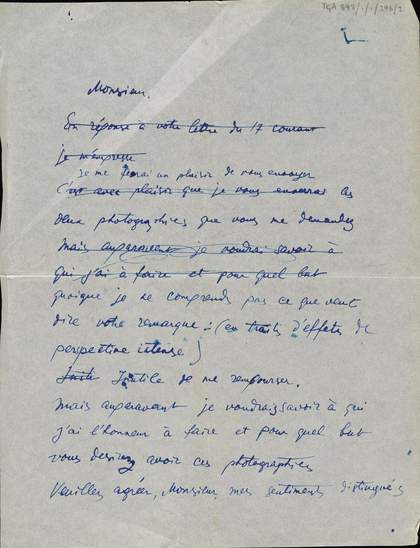 TGA 897/1/1/296/2
Monsieur.
En réponse à votre lettre du 17 courant
je m'empresse
Je me ferai un plaisir de vous envoyer
C'est avec plaisir que je vous enverrai les
deux photographies que vous me demandez
mais auparavant je voudrai savoir à
qui j'ai à faire et pour quel but
quoique je ne comprends pas ce que veut
dire votre remarque: (en traits d'effets de
perspective intense)
Inutile de me rembourser.
Mais auparavant je voudrais savoir à qui
j'ai l'honneur à faire et pour quel but
vous desirez avoir ces photographies
Veuillez agréer, Monsieur, mes sentiments distingués